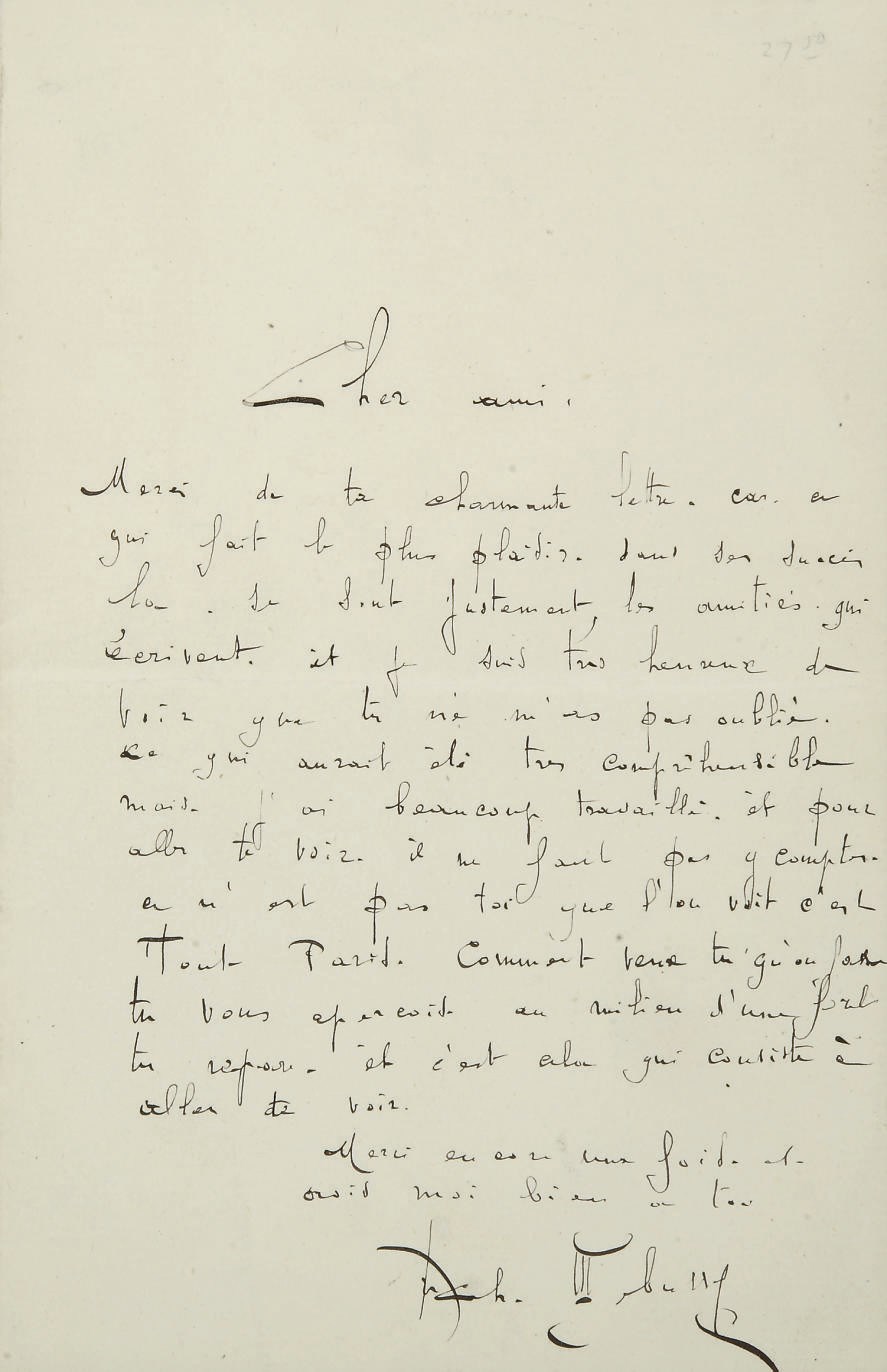 27 50
Cher ami.
Merci de ta charmante lettre. car. ce
qui fait le plus plaisir. dans ses succès
la. se sont justement, les amitiés. qui
écrivent. èt je suis très heureux de
voir que tu ne m'as pas oublié.
ce qui aurait été tres compréhensible
mais. j'ai beaucoup travaillé. èt pour
aller te voir. il ne faut pas y compter.
ce n'est pas toi que l'on voit c'est
Tout Paris. Comment veux tu qu'on fasse
tu vous apercois. au milieu d'une
tu. èt c'est cela qui consiste à
aller te voir.
Merci encore une fois. et.
crois moi bien a toi
Ach. Debussy